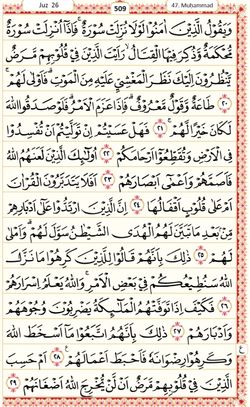 Juz 26
509
47. Muhammad
وَيَقُولُ الَّذِينَ اٰمَنُوا لَوْلَا نُزِّلَتْ سُورَةٌ فَاِذَٓا اُنْزِلَتْ سُورَةٌ
مُحْكَمَةٌ وَذُكِرَ فِيهَا الْقِتَالُ رَاَيْتَ الَّذِينَ فِي قُلُوبِهِمْ مَرَضٌ
يَنْظُرُونَ اِلَيْكَ نَظَرَ الْمَغْشِيِّ عَلَيْهِ مِنَ الْمَوْتِ فَاَوْلٰى لَهُمْ
﴿٢٠﴾ طَاعَةٌ وَقَوْلٌ مَعْرُوفٌ فَاِذَا عَزَمَ الْاَمْرُ فَلَوْ صَدَقُوا اللّٰهَ
لَكَانَ خَيْرًا لَهُمْ ﴿٢١﴾ فَهَلْ عَسَيْتُمْ اِنْ تَوَلَّيْتُمْ اَنْ تُفْسِدُوا
فِي الْاَرْضِ وَتُقَطِّعُٓوا اَرْحَامَكُمْ ﴿٢٢﴾ اُولٰٓئِكَ الَّذِينَ لَعَنَهُمُ اللّٰهُ
فَاَصَمَّهُمْ وَاَعْمٰٓى اَبْصَارَهُمْ ﴿٢٣﴾ اَفَلَا يَتَدَبَّرُونَ الْقُرْاٰنَ
اَمْ عَلٰى قُلُوبٍ اَقْفَالُهَا ﴿٢٤﴾ اِنَّ الَّذِينَ ارْتَدُّوا عَلٰٓى اَدْبَارِهِمْ
مِنْ بَعْدِ مَا تَبَيَّنَ لَهُمُ الْهُدَى الشَّيْطَانُ سَوَّلَ لَهُمْ وَاَمْلٰى
لَهُمْ ﴿٢٥﴾ ذٰلِكَ بِاَنَّهُمْ قَالُوا لِلَّذِينَ كَرِهُوا مَا نَزَّلَ
اللّٰهُ سَنُطِيعُكُمْ فِي بَعْضِ الْاَمْرِ وَاللّٰهُ يَعْلَمُ اِسْرَارَهُمْ
﴿٢٦﴾ فَكَيْفَ اِذَا تَوَفَّتْهُمُ الْمَلٰٓئِكَةُ يَضْرِبُونَ وُجُوهَهُمْ
وَاَدْبَارَهُمْ ﴿٢٧﴾ ذٰلِكَ بِاَنَّهُمُ اتَّبَعُوا مَٓا اَسْخَطَ اللّٰهَ
وَكَرِهُوا رِضْوَانَهُ فَاَحْبَطَ اَعْمَالَهُمْ ﴿٢٨﴾ اَمْ حَسِبَ
الَّذِينَ فِي قُلُوبِهِمْ مَرَضٌ اَنْ لَنْ يُخْرِجَ اللّٰهُ اَضْغَانَهُمْ ﴿٢٩﴾